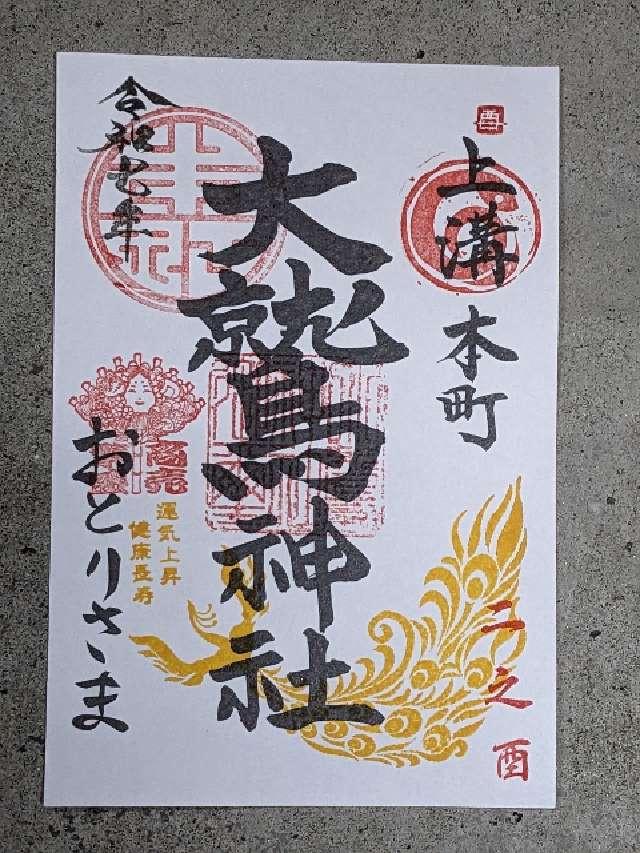 酉
上溝
本町
二之酉
大鷲神社
令和七年
商売
運気上昇
健康長寿
おとりさま